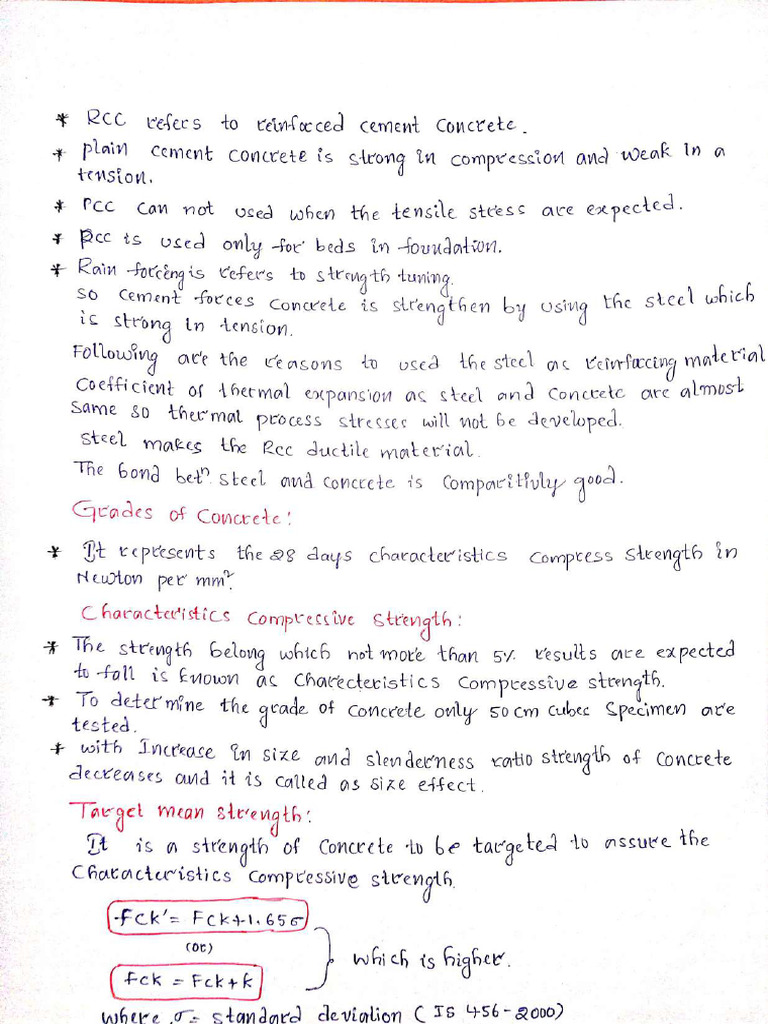 * RCC refers to reinforced cement concrete.
* plain cement concrete is strong in compression and weak in a
tension.
* PCC can not used when the tensile stress are expected.
* Pcc is used only for beds in foundation.
* Rain forcing is refers to strength tuning.
so cement forces concrete is strengthen by using the steel which
is strong in tension.
Following are the reasons to used the steel as reinfaccing material
Coefficient of thermal expansion as steel and concrete are almost
same so thermal process stresses will not be developed.
Steel makes the Rcc ductile material.
The bond betn steel and concrete is Comparitivly good.
Grades of Concrete:
* It represents the 28 days characteristics compress strength in
Newton per mm².
Characteristics Compressive Strength:
* The strength belong which not more than 5% results are expected
to fall is known as charecteristics compressive strength.
* To determine the grade of concrete only 50 cm cubec specimen are
tested.
* with Increase in size and slenderness ratio strength of concrete
decreases and it is called as size effect.
Target mean strength:
It is a strength of concrete to be targeted to assure the
Characteristics compressive strength.
fck' = Fck+1.65σ
(or)
which is higher.
fck = Fck+k
where σ = standard deviation (IS 456-2000)